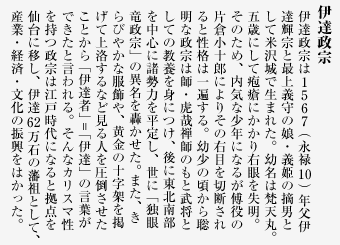 伊達政宗
伊達政宗は1567(永禄10)年父伊
達輝宗と最上義守の娘・義姫の摘男と
して米沢城で生まれた。幼名は梵天丸。
五歳にして疱瘡にかかり右眼を失明。
そのため、内気な少年になるが傅役の
片倉小十郎によりその右目を切断され
ると性格は一遍する。幼少の頃から聡
明な政宗は師・虎哉禅師のもと武将と
しての教養を身につけ、後に東北南部
を中心に諸勢力を平定し、世に「独眼
竜政宗」の異名を轟かせた。また、き
らびやかな服飾や、黄金の十字架を掲
げて上洛するなど見る人を圧倒させた
ことから「伊達者」=「伊達」の言葉が
できたと言われる。そんなカリスマ性
を持つ政宗は江戸時代になると拠点を
仙台に移し、伊達62万石の藩祖として、
産業・経済・文化の振興をはかった。